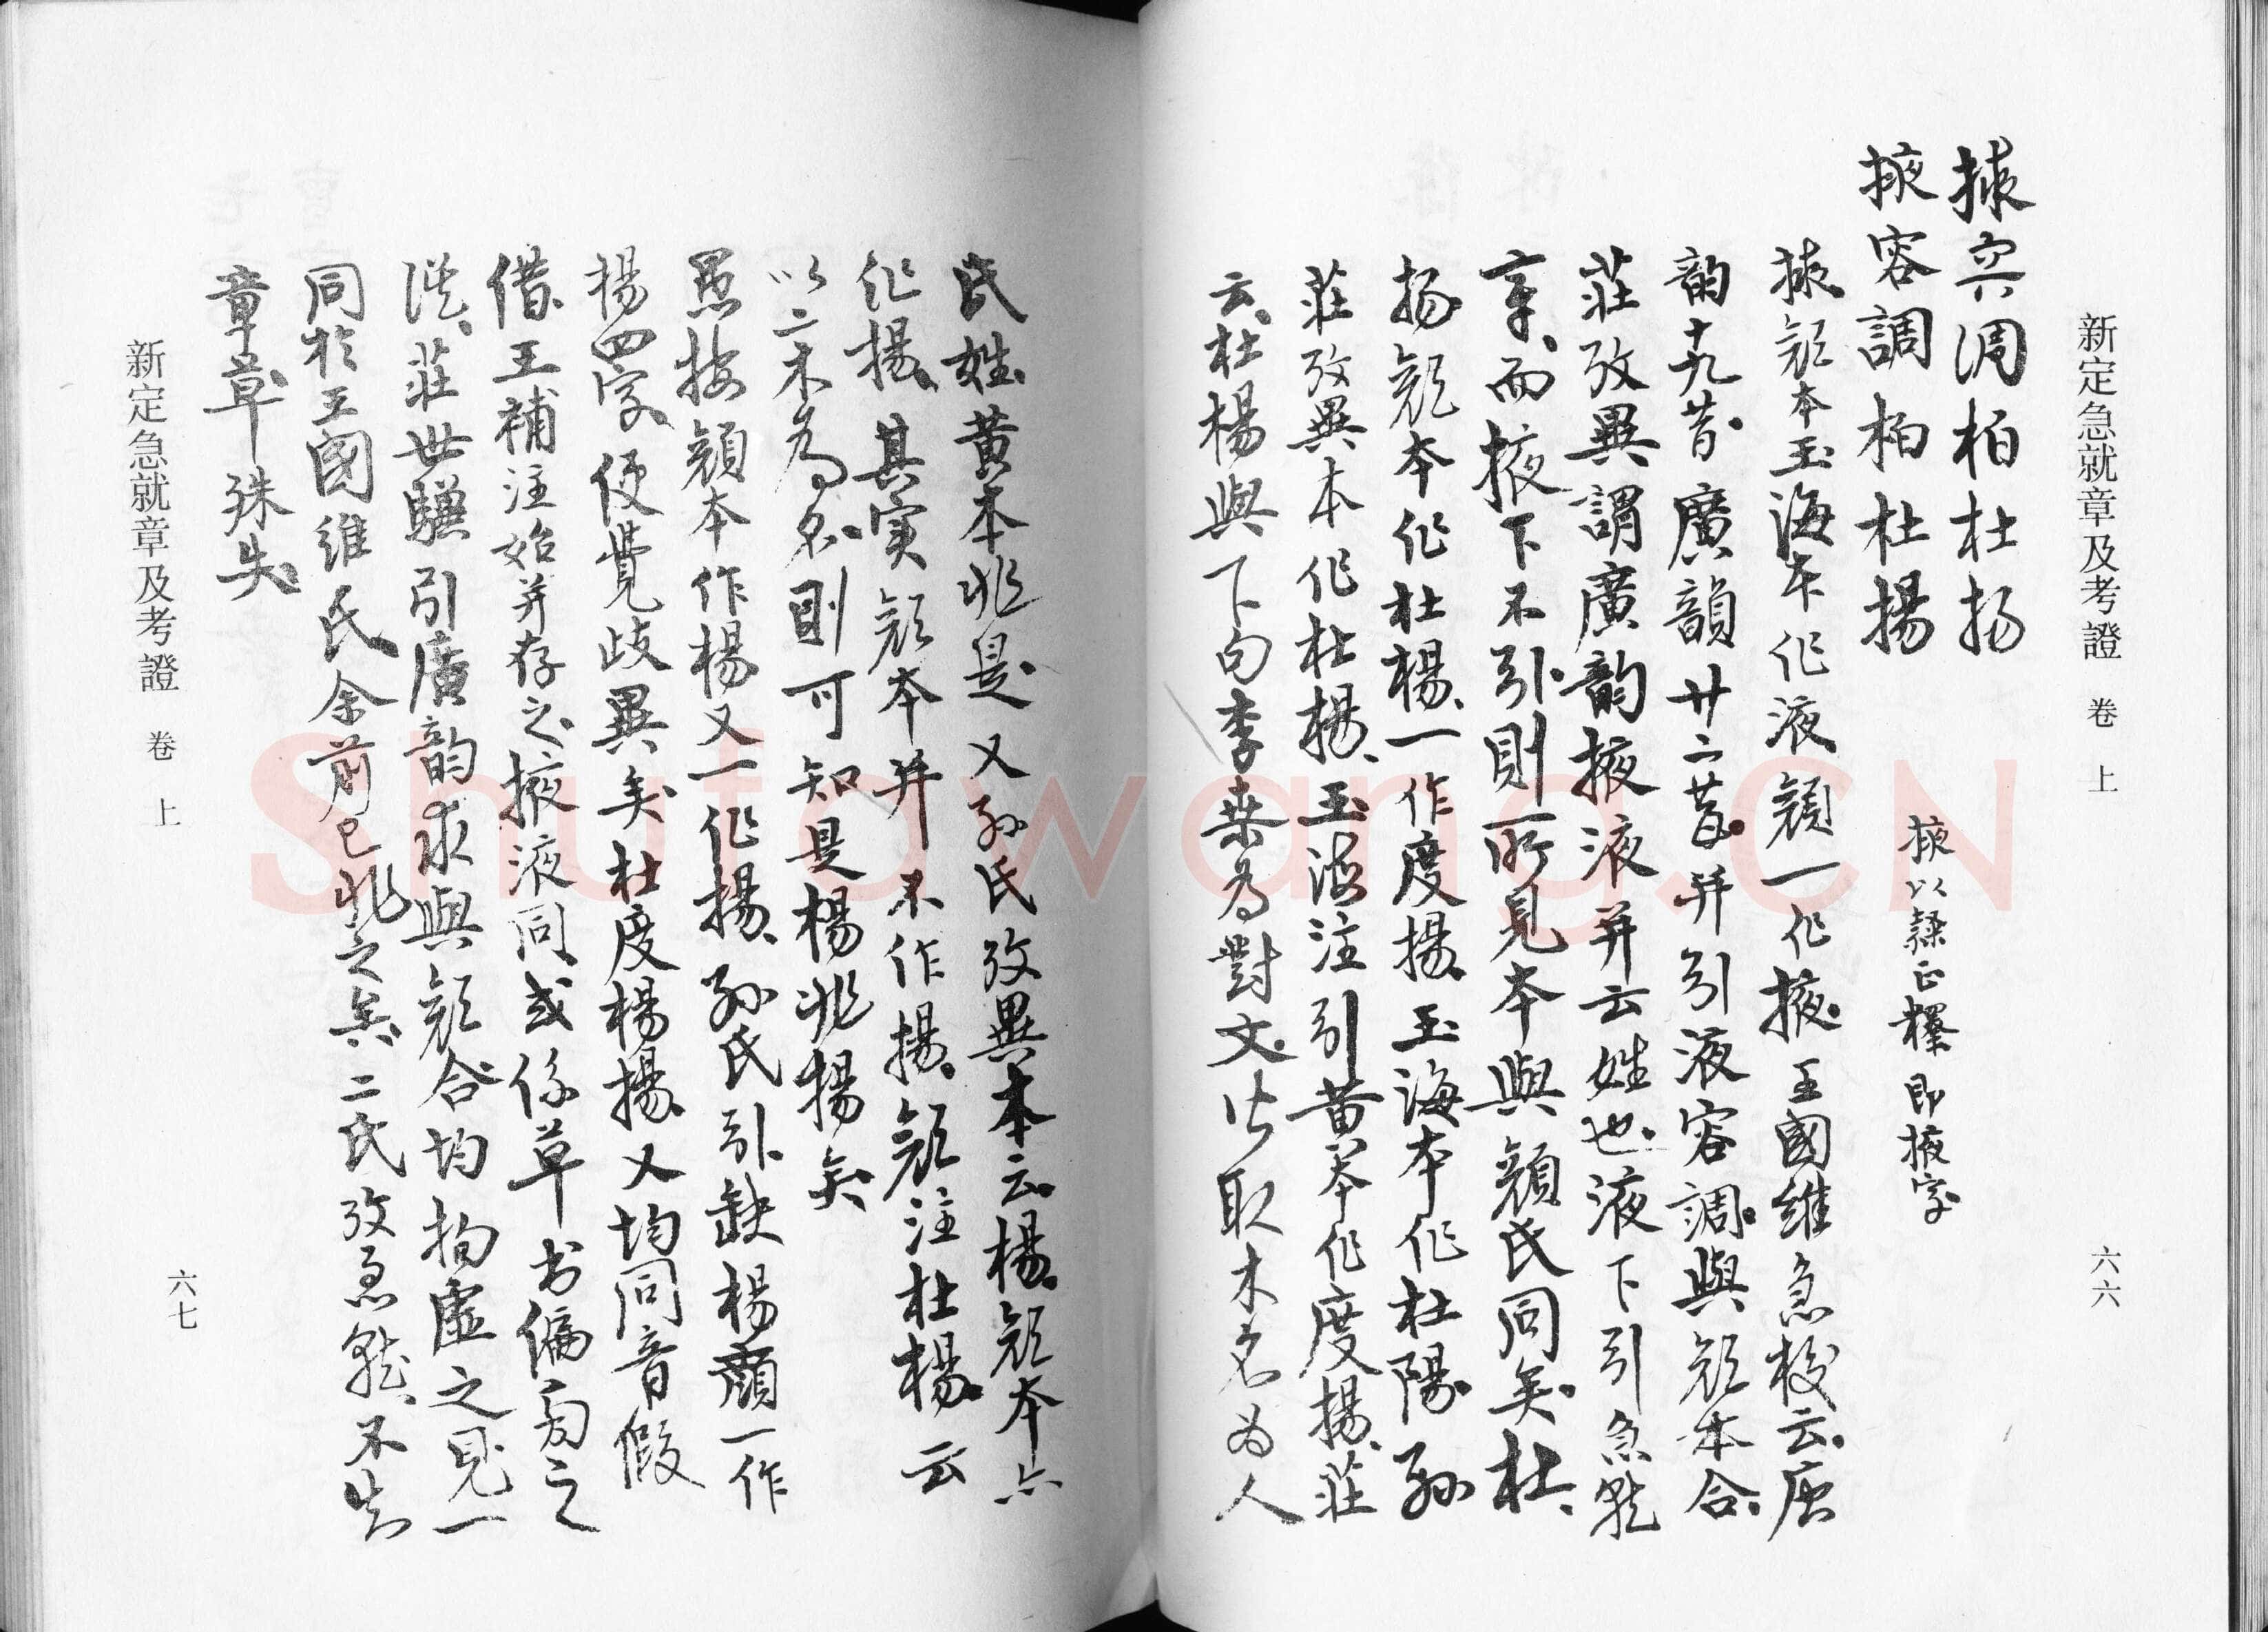 新定急就章及考證 卷上 六六
掖容調柏杜揚
掖容調柏杜揚 掖以隸正釋即掖字
掖顏本玉海本作液顏一作掖王國維急校云唐
韵十九昔廣韻廿二昔并引液容調與顏本合
莊攷異謂廣韵掖液并云姓也液下引急就
章而掖下不引則所見本與顏氏同矣杜
揚顏本作杜楊一作度揚玉海本作杜陽孫
莊攷異本作杜楊玉海注引黄本作度揚莊
云杜楊與下句李桑為對文皆取木名為人
氏姓黄本非是又孫氏攷異本云楊顏本亦
作揚其实顏本并不作揚顏注杜楊云
以二木為名則可知是楊非揚矣
愚按顏本作楊又一作揚孫氏引缺楊顏一作
揚四字便覺歧異矣杜度楊揚又均同音假
借王補注始并存之掖液同或係草书偏旁之
混莊世驥引廣韵求與顏合均拘虛之見一
同於王國維氏余前已非之矣二氏攷急就不失
章草殊失
新定急就章及考證 卷上 六七
Shufawang.CN